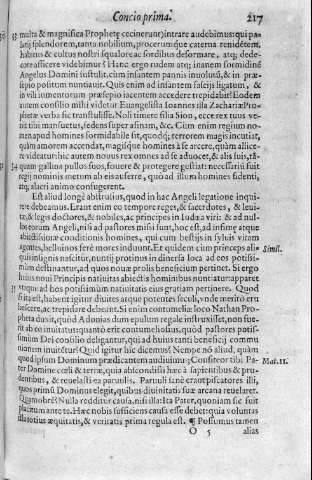 Concio prima. 217
multa & magnifica Prophetę cecinerunt) intrare audebimus: qui pa-
latij splendorem, tanta nobilium, procerumque caterua renidētem,
habitus & cultus nostri squalore ac sordibus deformare, atq; dede-
core afficere videbimur? Hanc ergo rudem atq; inanem formidinē
Angelus Domini sustulit, cum infantem pannis inuolutū, & in præ-
sepio positum nuntiauit. Quis enim ad infantem fascijs ligatum, &
in vili iumentorum præsepio iacentem accedere trepidabit? Eodem
autem consilio mihi videtur Euangelista Ioannes illa Zachariæ Pro-
phetæ verba sic transtulisse. Noli timere filia Sion, ecce rex tuus ve-
nit tibi mansuetus, sedens super asinam, &c. Cum enim regium no-
men apud homines formidabile sit, quodq; terrorem magis incutiat,
quàm amorem accendat, magisque homines à se arcere, quàm allice-
re videatur: hic autem nouus rex omnes ad se aduocet, & alis suis, tā-
quam gallina pullos suos, fouere & protegere gestiat: necessariū fuit
regij nominis metum ab eis auferre, quo ad illum homines fidenti,
atq; alacri animo confugerent.
Est aliud longè abstrusius, quod in hac Angeli legatione inqui-
rere debeamus. Erant enim eo tempore reges, & sacerdotes, & leui-
tæ, & legis doctores, & nobiles, ac principes in Iudæa viri: & ad nul-
los eorum Angeli, nisi ad pastores missi sunt, hoc est, ad infimę atque
abiectissimæ conditionis homines, qui cum bestijs in syluis vitam
agentes, belluinos ferè mores induunt. Et quidem cùm princeps ali- Simil.
quis insignis nascitur, nuntij protinus in diuersa loca ad eos potissi-
mùm destinantur, ad quos nouæ prolis beneficium pertinet. Si ergo
huius noui Principis natiuitas abiectis hominibus nuntiatur: apparet
vtique ad hos potissimùm natiuitatis eius gratiam pertinere. Quod
si ita est, habent igitur diuites atque potentes seculi, vnde meritò eru
bescere, ac trepidare debeant. Si enim contumeliæ loco Nathan Pro-
pheta duxit, quòd Adonias dum epulum regale instruxisset, non fue-
rit ab eo inuitatus: quantò erit contumeliosius, quòd pastores potis-
simùm Dei consilio deligantur, qui ad huius tanti beneficij commu
nionem inuitētur? Quid igitur hîc dicemus? Nempe nō aliud, quàm
quod ipsum Dominum prædicantem audiuimus: Confiteor tibi Pa- Mat. 11.
ter Domine cœli & terræ, quia abscondisti hæc à sapientibus & pru-
dentibus, & reuelasti ea paruulis. Paruuli sanè erant piscatores illi,
quos primū Dominus elegit, quibus diuinitatis suæ arcana reuelaret.
Quamobrē? Nulla redditur causa, nisi illa: Ita Pater, quoniam sic fuit
placitum ante te. Hæc nobis sufficiens causa esse debet: quia voluntas
illa totius æquitatis, & veritatis prima regula est. ¶ Possumus tamen
O 5 alias